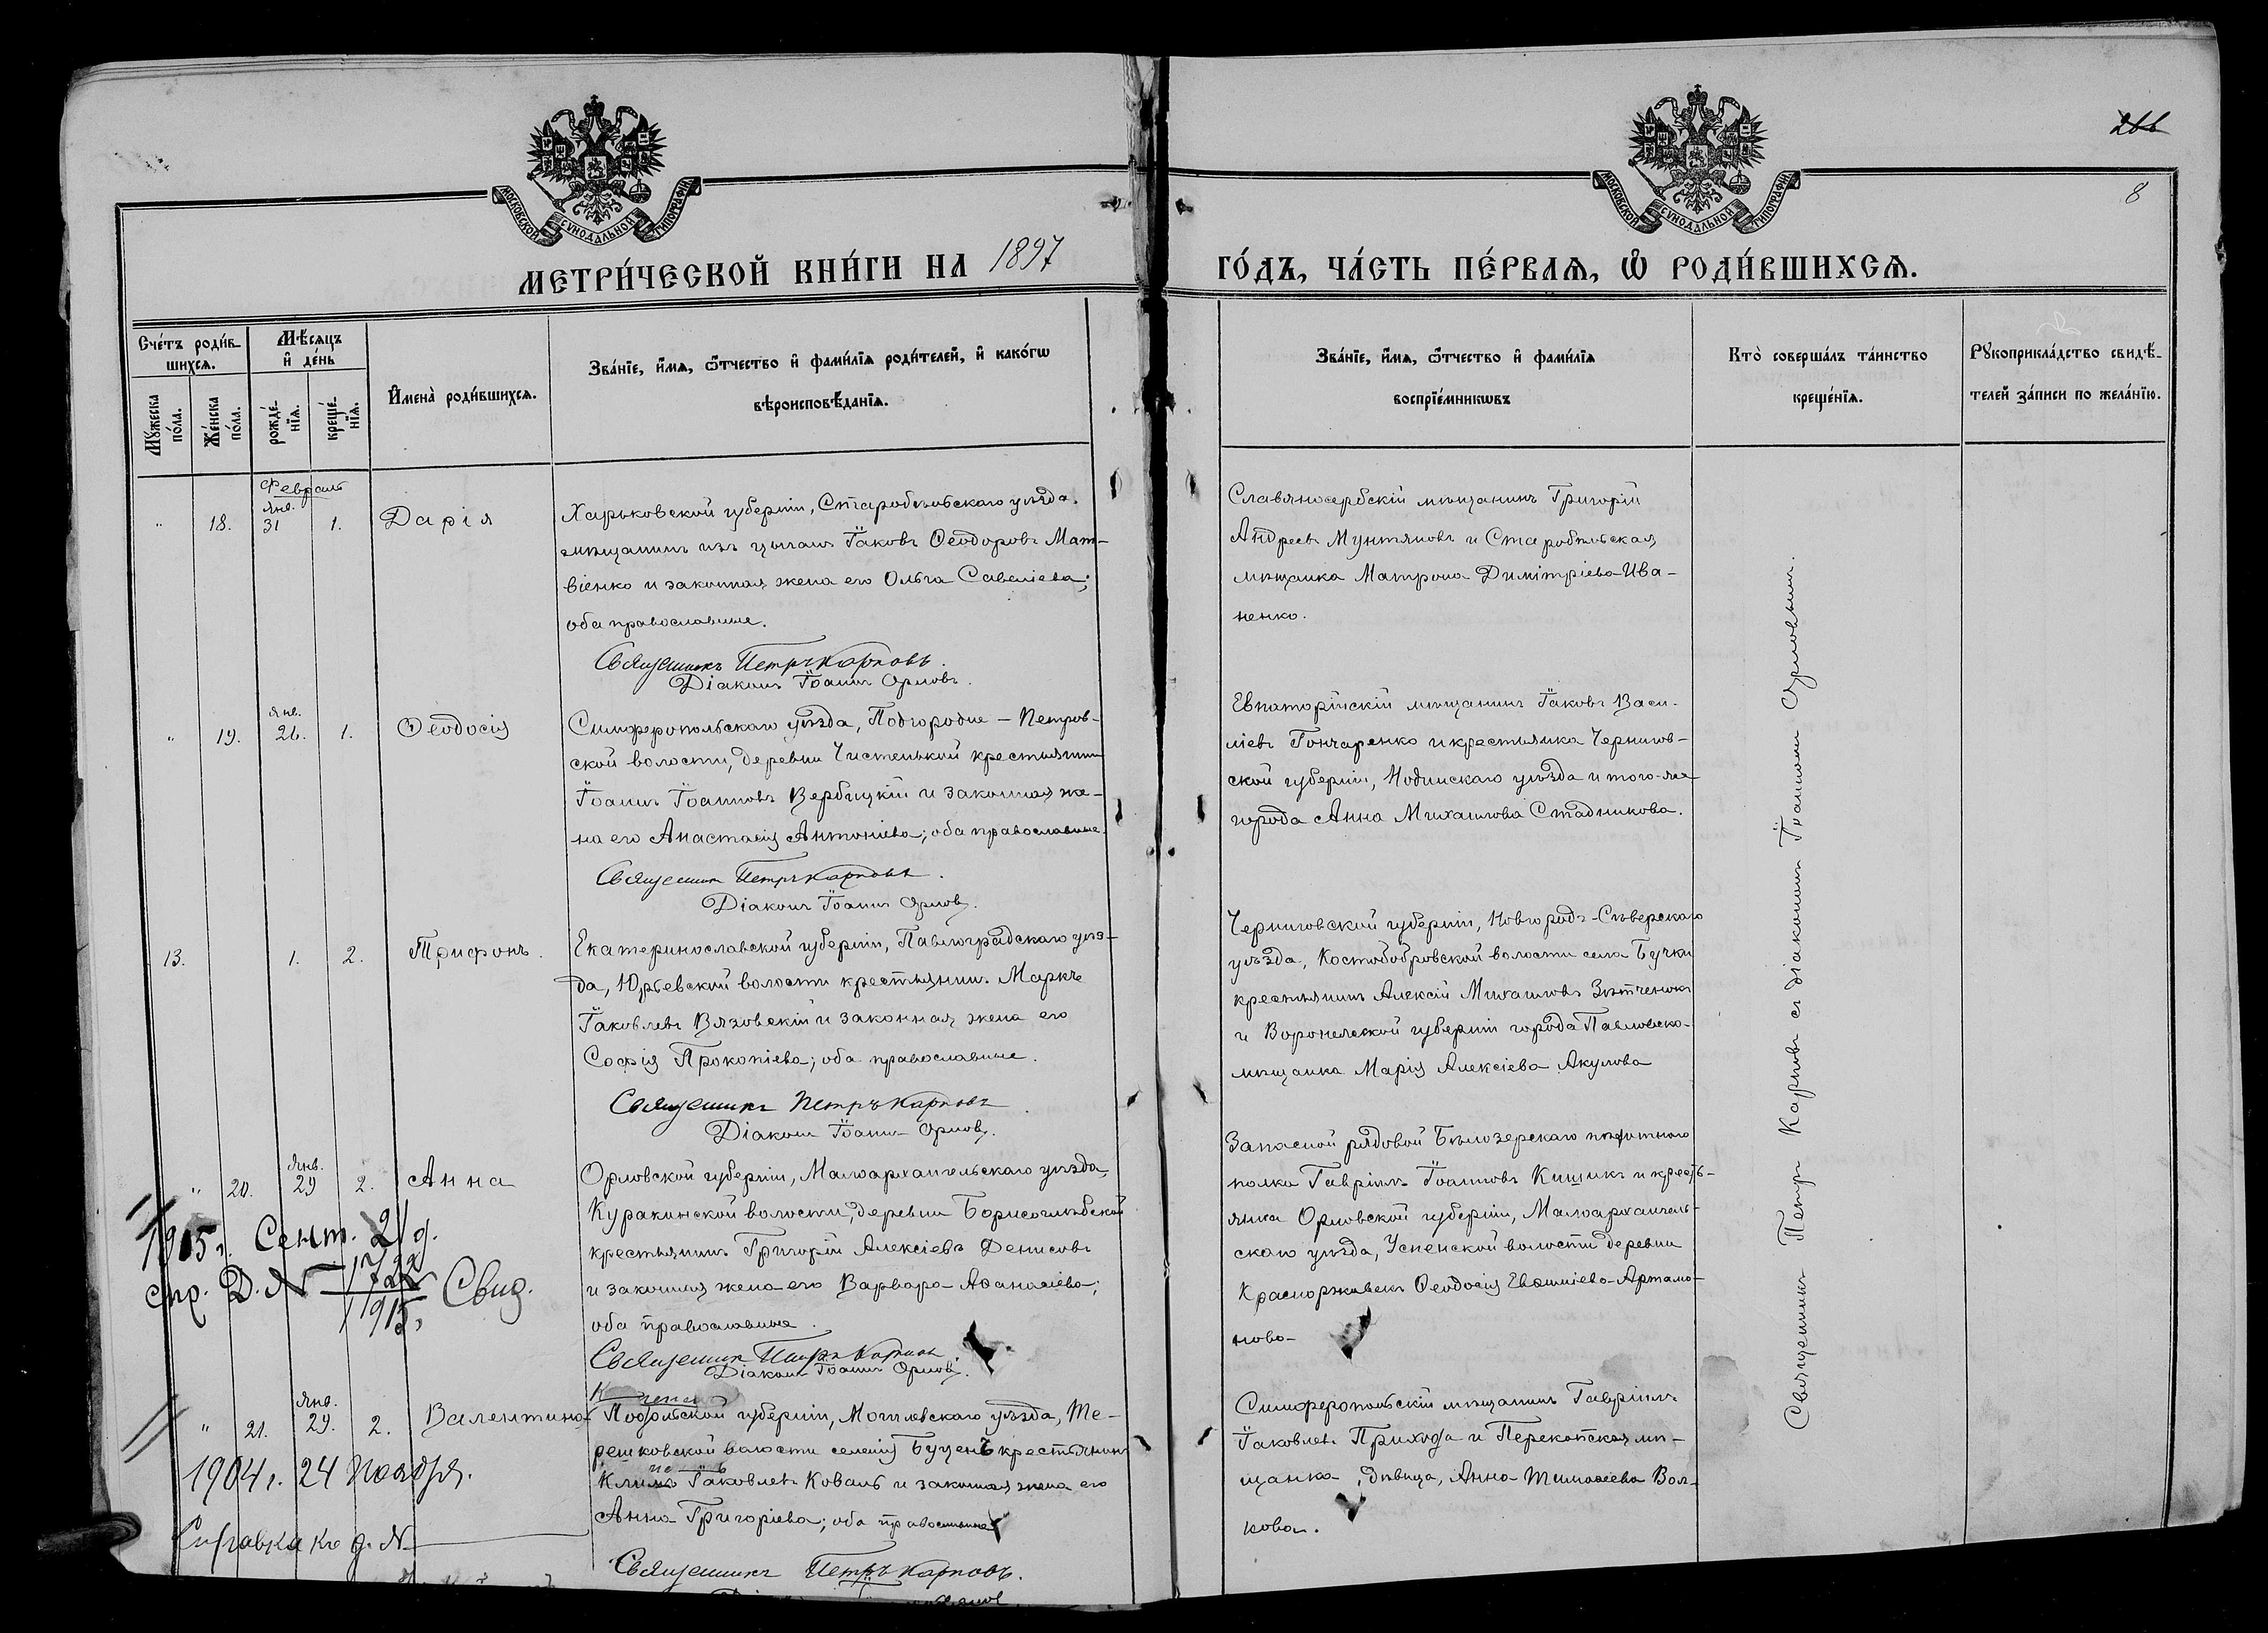 266
8
МОСКОВСКОЙ СѴНОДАЛЬНОЙ ТИПОГРАФІИ
МОСКОВСКОЙ СѴНОДАЛЬНОЙ ТИПОГРАФІИ
МЕТРИ́ЧЕСКОЙ КНИ́ГИ НА 1897
ГО́ДЪ, ЧА́СТЬ ПЕ́РВАѦ, Ѿ РОДИ́ВШИХСѦ.
Сче́тъ роди́в-
шихсѧ.
Мѹ́жеска по́ла.
Же́нска по́ла.
Мѣ́сѧцъ и҆ де́нь
рожде́-
нїѧ.
креще́-
нїѧ.
И҆мена̀ роди́вшихсѧ.
Зва́нїе, и҆́мѧ, ѻ҆́тчество и҆ фами́лїѧ роди́телей, и҆ како́гѡ
вѣроисповѣ́данїѧ.
Зва́нїе, и҆́мѧ, ѻ҆́тчество и҆ фами́лїѧ
воспрїе́мникѡвъ
Кто̀ соверша́лъ та́инство
креще́нїѧ.
Рѹкоприкла́дство свидѣ́-
телей за́писи по жела́нїю.
Февраль
" 18. Янв. 31 1. Дарія
Харьковской губерніи, Старобѣльскаго уѣзда.
мѣщанинъ изъ цыганъ Іаковъ Ѳеодоровъ Мат-
віенко и законная жена его Ольга Савеліева;
оба православные.
Священникъ Петръ Карповъ.
Діаконъ Іоаннъ Орловъ.
Славяносербскій мѣщанинъ Григорій
Андреевъ Мунтяновъ и Старобѣльская
мѣщанка Матрона Димітріева Ива-
ненко.
" 19. Янв. 26. 1. Ѳеодосія
Симферопольскаго уѣзда, Подгородне-Петров-
ской волости, деревни Чистенькой крестьянинъ
Іоаннъ Іоанновъ Вербицкій и законная же-
на его Анастасія Антоніева; оба православные.
Священникъ Петръ Карповъ.
Діаконъ Іоаннъ Орловъ.
Евпаторійскій мѣщанинъ Іаковъ Васи-
ліевъ Гончаренко и крестьянка Чернигов-
ской губерніи, уѣзда и того-же
города Анна Михаилова Стадникова.
13. 1. 2. Трифонъ.
Екатеринославской губерніи, Павлоградскаго уѣз-
да, Юрьевской волости крестьянинъ Маркъ
Іаковлевъ Вязовскій и законная жена его
Софія Прокопіева; оба православные.
Священникъ Петръ Карповъ
Діаконъ Іоаннъ Орловъ.
Черниговской губерніи, Новгородъ-Сѣверскаго
уѣзда, Костобобровской волости села Бучки
крестьянинъ Алексій Михаиловъ
и Воронежской губерніи города Павловска
мѣщанка Марія Алексіева Акулова
" 20. Янв. 29 2. Анна
Орловской губерніи, Малоархангельскаго уѣзда,
Куракинской волости, деревни Борисоглѣбской
крестьянинъ Григорій Алексіевъ Денисовъ
и законная жена его Варвара Аѳанасіева;
оба православные.
Священникъ Петръ Карповъ.
Діаконъ Іоаннъ Орловъ.
Запасной рядовой Бѣлозерскаго пѣхотнаго
полка Гавріилъ Іоанновъ Кишикъ и кресть-
янка Орловской губерніи, Малоархангель-
скаго уѣзда, Успенской волости деревни
Ѳеодосія Артамо-
нова
1905 г. Сент. 21 д.
стр. Д. № 1722/1915, Свид.
" 21. Янв. 29. 2. Валентина
Подольской губерніи, Могилевскаго уѣзда, Те-
решковской волости селенія крестьянинъ
Климъ Іаковлевъ Коваль и законная жена его
Анна Григоріева; оба православные
Священникъ Петръ Карповъ.
Симферопольскій мѣщанинъ Гавріилъ
Іаковлевъ Приходa и Перекопская мѣ-
щанка, дѣвица, Анна Тимоѳеева Вол-
кова.
1904 г. 24 Ноября.
Справка къ д. №
Священникъ Петръ Карповъ съ діакономъ Іоанномъ Орловымъ.